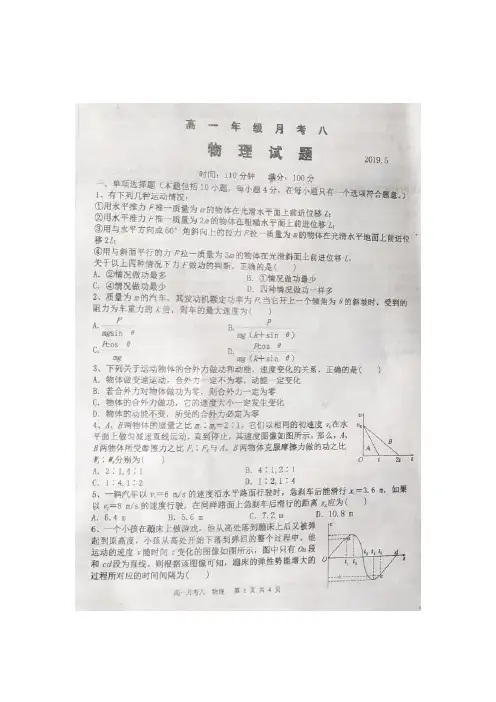 高一年级月考八
物理试题
2019.5
时间：110分钟 满分：100分
一、单项选择题（本题包括10小题，每小题4分，在每小题只有一个选项符合题意。）
1、有下列几种运动情况：
①用水平推力F推一质量为m的物体在光滑水平面上前进位移L；
②用水平推力F推一质量为2m的物体在粗糙水平面上前进位移L；
③用与水平方向成60°角斜向上的拉力F拉一质量为m的物体在光滑水平地面上前进位
移2L；
④用与斜面平行的力F拉一质量为3m的物体在光滑斜面上前进位移L。
关于以上四种情况下力F做功的判断，正确的是( )
A．②情况做功最多 B．①情况做功最少
C．④情况做功最少 D．四种情况做功一样多
2、质量为m的汽车，其发动机额定功率为P.当它开上一个倾角为θ的斜坡时，受到的
阻力为车重力的k倍，则车的最大速度为( )
A. P/mgsin θ B. P/mg(k+sin θ)
C. Pcos θ/mg D. Pcos θ/mg(k+sin θ)
3、下列关于运动物体的合外力做功和动能、速度变化的关系，正确的是( )
A．物体做变速运动，合外力一定不为零，动能一定变化
B．若合外力对物体做功为零，则合外力一定为零
C．物体的合外力做功，它的速度大小一定发生变化
D．物体的动能不变，所受的合外力必定为零
4、A、B两物体的质量之比mA∶mB=2∶1，它们以相同的初速度v0在水
平面上做匀减速直线运动，直到停止，其速度图像如图所示。那么，A、
B两物体所受摩擦力之比FA∶FB与A、B两物体克服摩擦力做的功之比
WA∶WB分别为( )
A．2∶1,4∶1 B．4∶1,2∶1
C．1∶4,1∶2 D．1∶2,1∶4
v
v0
A
B
O t 2t t
5、一辆汽车以v1=6 m/s的速度沿水平路面行驶时，急刹车后能滑行x1=3.6 m，如果
以v2=8 m/s的速度行驶，在同样路面上急刹车后滑行的距离x2应为( )
A．6.4 m B．5.6 m C．7.2 m D．10.8 m
6、一个小孩在蹦床上做游戏，他从高处落到蹦床上后又被弹
起到原高度，小孩从高处开始下落到弹回的整个过程中，他
运动的速度v随时间t变化的图像如图所示，图中只有Oa段
和cd段为直线。则根据该图像可知，蹦床的弹性势能增大的
过程所对应的时间间隔为( )
高一月考八 物理 第1页共4页